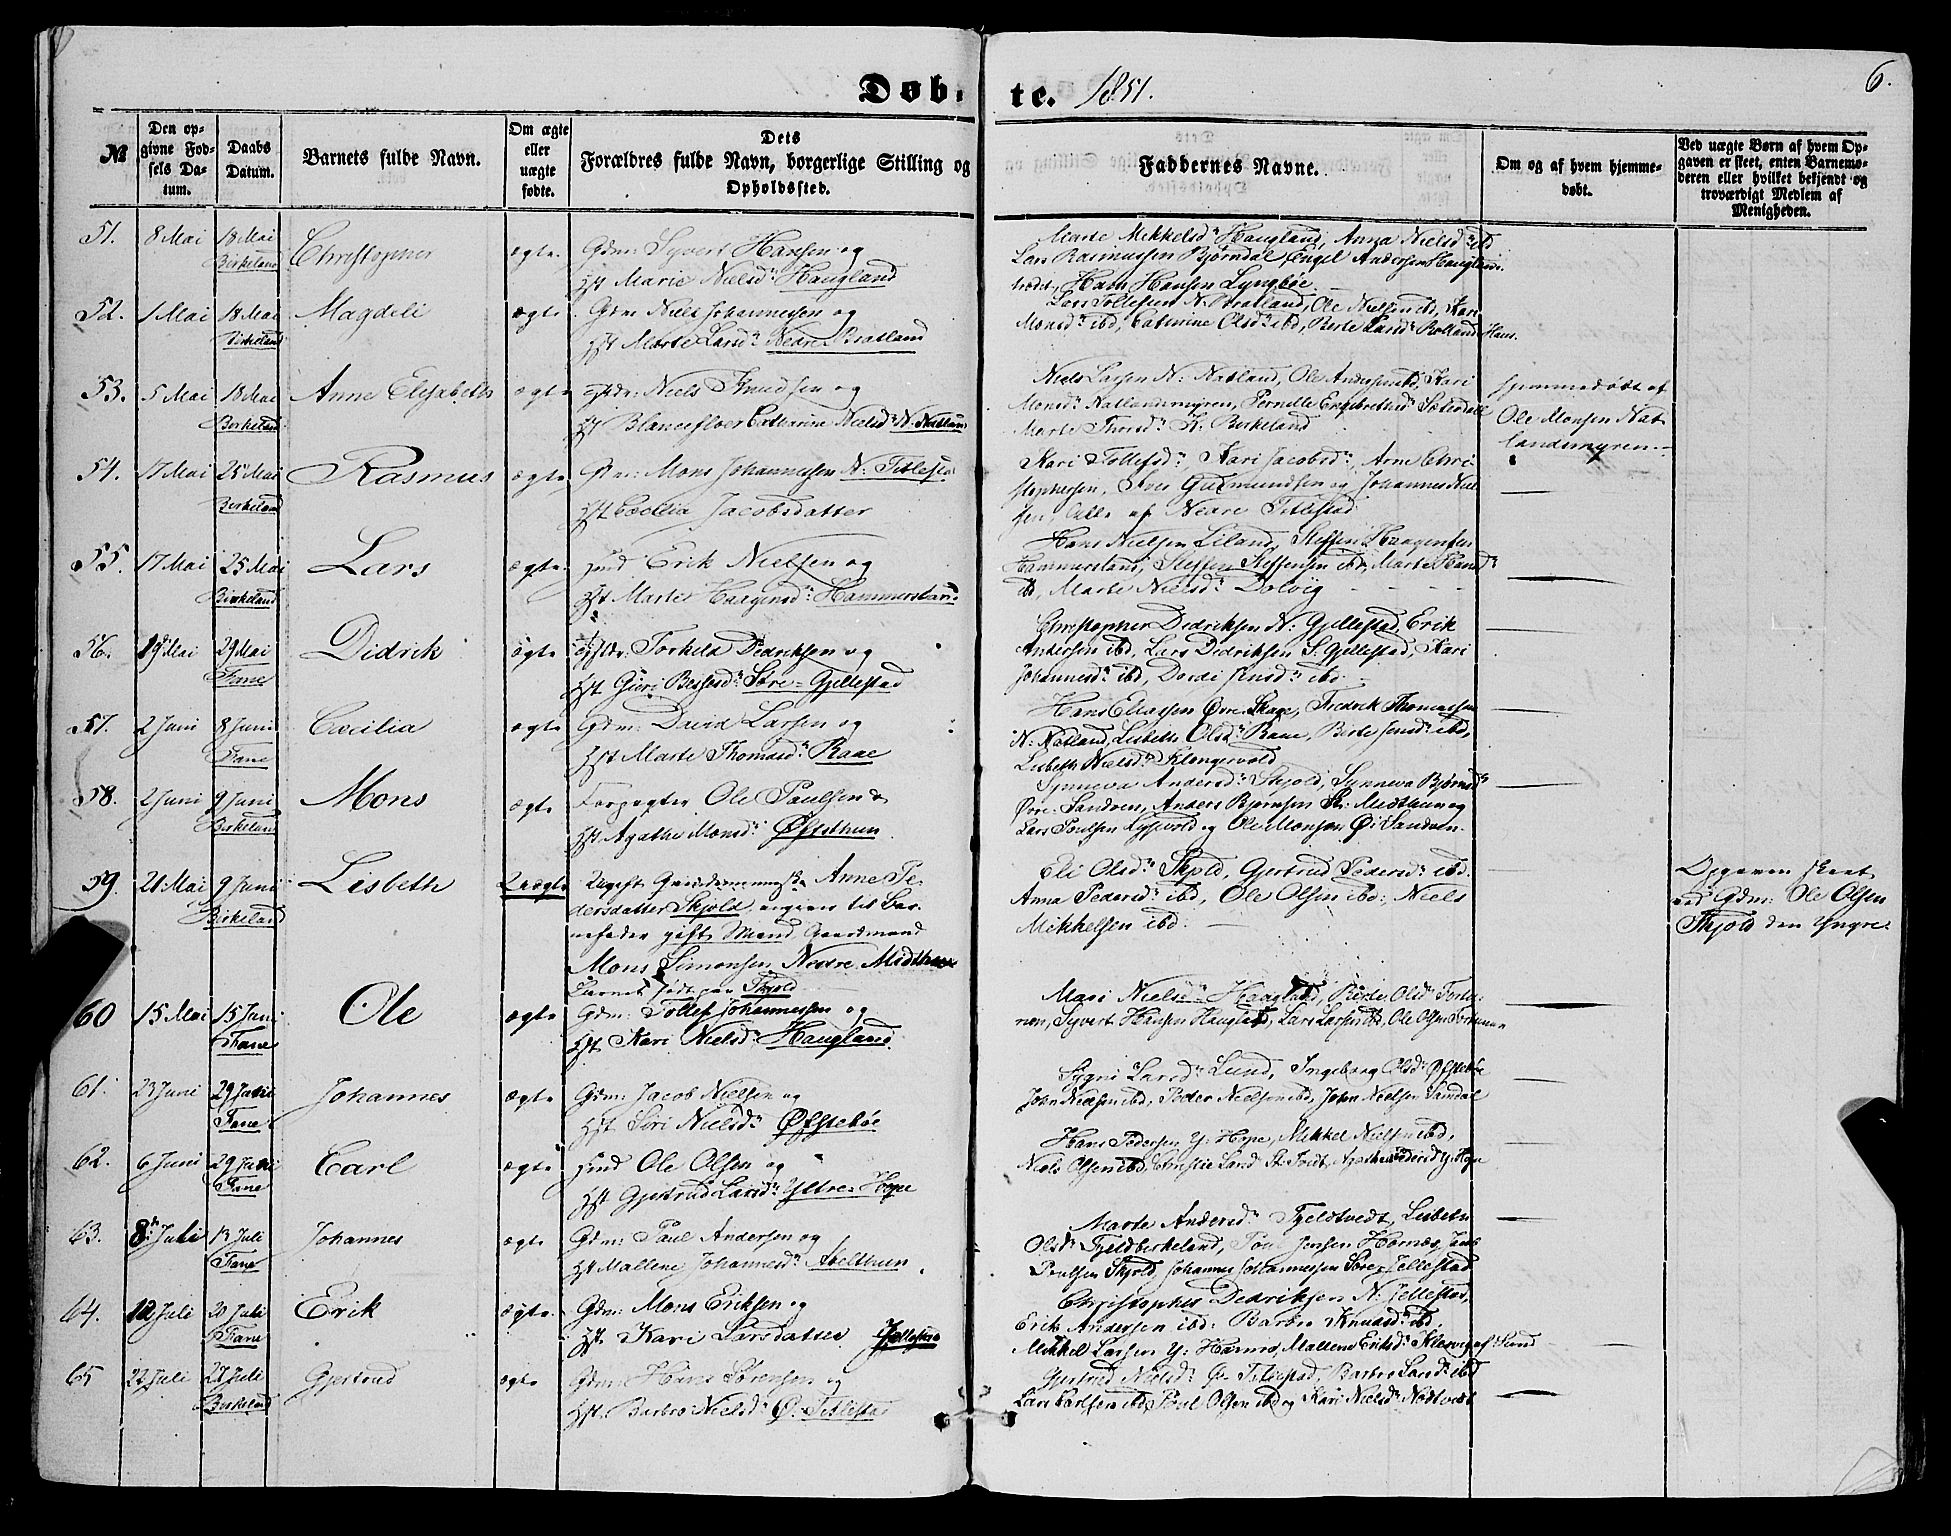 Døb- te. 1851. 6.
№
Den op-
givne Fød-
sels Da-
tum.
Daabs
Datum.
Barnets fulde Navn.
Om ægte
eller
uægte
fødte.
Dets
Forældres fulde Navn, borgerlige Stilling og
Opholdssted.
Faddernes Navne.
Om og af hvem hjemme-
døbt.
Ved uægte Børn af hvem Op-
gaven er skeet, enten Barnemo-
deren eller hvilket bekjendt og
troværdigt Medlem af
Menigheden.
51. 8 Mai 18 Mai Birkeland Christopher ægte.
Gdm: Syvert Hansen og
Hst Marie Nielsd: Haugland
Marte Mikkelsd: Haugland, Anna Nielsd: ibd
Lars Rasmussen Bjørndal, Engel Andersen Haugland
Hans Hansen Lyngbøe
52. 1 Mai 18 Mai Birkeland Magdeli ægte
Gdm Niels Johannessen og
Hst Marte Larsd: Nedre Bratland
Lars Tollefsen N. Bratland, Ole Nielsen ibd, Kari
Monsd: ibd, Cathrine Olsd: ibd, Berte Larsd: Rolland
53. 5 Mai 18 Mai Birkeland Anne Elisabeth ægte
Niels Knudsen og
Hst Blancefloer Cathrine Nielsd: N. Natland
Niels Larsen N: Natland, Ole Andersen ibd, Kari
Monsd: Natlandsmyren, Pernelle Engebrethsd: Sæterdal
Marte Thorsd: K. Birkeland
hjemmedøbt af
Ole Monsen Nat-
landsmyren
54. 17 Mai 25 Mai Birkeland Rasmus ægte
Gdm: Mons Johannessen N: Titlestad
Hst Cæcilia Jacobsdatter
Kari Tollefsd: Kari Jacobsd:, Arne Chri-
stophersen, Iver Gudmundsen og Johannes Niel-
sen, Alle af Nedre Titlestad
55. 17 Mai 25 Mai Birkeland Lars ægte
Hmd Erik Nielsen og
Hst Marte Haagensd: Hammersland
Hans Nielsen Liland, Steffen Haagensen
Hammersland, Steffen Steffensen ibd, Marte Hansd:
ibd, Marte Nielsd: Dolvig
56. 19 Mai 29 Mai Fane Didrik ægte
Torkeld Didriksen og
Hst Giøri Bessesd: Søre-Gjellestad
Christopher Didriksen N. Gjellestad, Erik
Andersen ibd, Lars Didriksen S. Gjellestad, Kari
Johannesd: ibd, Dordi Jensd: ibd
57. 2 Juni 8 Juni Fane Cæcilia ægte
Gdm: David Larsen og
Hst Marte Thomasd: Raae
Hans Eliassen Øvre Skage, Fredrik Thomassen
N: Natland, Lisbeth Olsd: Raae, Berte Jensd: ibd,
Lisbeth Nielsd: Klongervold
58. 2 Juni 9 Juni Birkeland Mons ægte
Forpagter Ole Paulsen &
Hst Agathe Monsd: Øfstethun
Synneva Andersd: Skjold, Synneva Bjørnsd:
Øvre Sandven, Anders Bjørnsen St: Midthun og
Lars Poulsen Lyssvold og Ole Monsen Ø: Sandven
59. 21 Mai 9 Juni Birkeland Lisbeth Uægte
Ugift Anne Pe-
dersdatter Skjold, angiver til Bar-
nefader gift Mand Gaardmand
Mons Simonsen Nedre Midthun
Barnet født paa Skjold
Eli Olsd: Skjold, Gjertrud Pedersd: ibd.
Anna Pedersd: ibd, Ole Olsen ibd, Niels
Mikkelsen ibd.
Opgaven skeet
ved Gdm: Ole Olsen
Skjold den yngre.
60 15 Mai 15 Juni Fane Ole ægte
Gdm: Tollef Johannessen og
Hst Kari Nielsd: Haugland
Mari Nielsd: Haugland, Berte Olsd: Fortu-
nen, Syvert Hansen Haugland, Lars Larsen ibd, Ole Olsen Fortunen
61. 23 Juni 29 Juni Fane Johannes ægte
Gdm: Jacob Nielsen og
Hst Siri Nielsd: Øfstebøe
Sygni Larsd: Lund, Ingeborg Olsd: Øfstebøe
John Nielsen ibd, Peder Nielsen ibd, John Nielsen Samdal
62. 6 Juni 29 Juni Fane Carl ægte
Hmd Ole Olsen og
Hst Gjertrud Larsd: Yttre-Hope
Hans Pedersen Y: Hope, Mikkel Nielsen ibd,
Niels Olsen ibd,
63. 8 Juli 13 Juli Fane Johannes ægte
Gdm: Paul Andersen og
Hst Mallene Johannesd: Apelthun
Marte Andersd: Tveldtvedt, Lisbeth
Olsd: Fjeldbirkeland, Poul Jensen Hornæs,
Poulsen Skjold, Johannes Johannessen Søre-Jellestad
64. 12 Juli 20 Juli Fane Erik ægte
Gdm: Mons Eriksen og
Hst Kari Larsdatter Jellestad
Christopher Didriksen N: Jellestad,
Erik Andersen ibd, Barbro Knudsd: ibd,
Mikkel Larsen Y: Hornnæs, Mallene Eriksd:
65 22 Juli 27 Juli Birkeland Gjertrud ægte
Gdm: Hans Sørensen og
Hst. Barbro Nielsd: Ø. Titlestad
Gjertrud Nielsd: Ø. Titlestad, Barbro Larsd: ibd
Lars Carlsen ibd, Poul Olsen ibd og Kari Nielsd: Nødtvedt